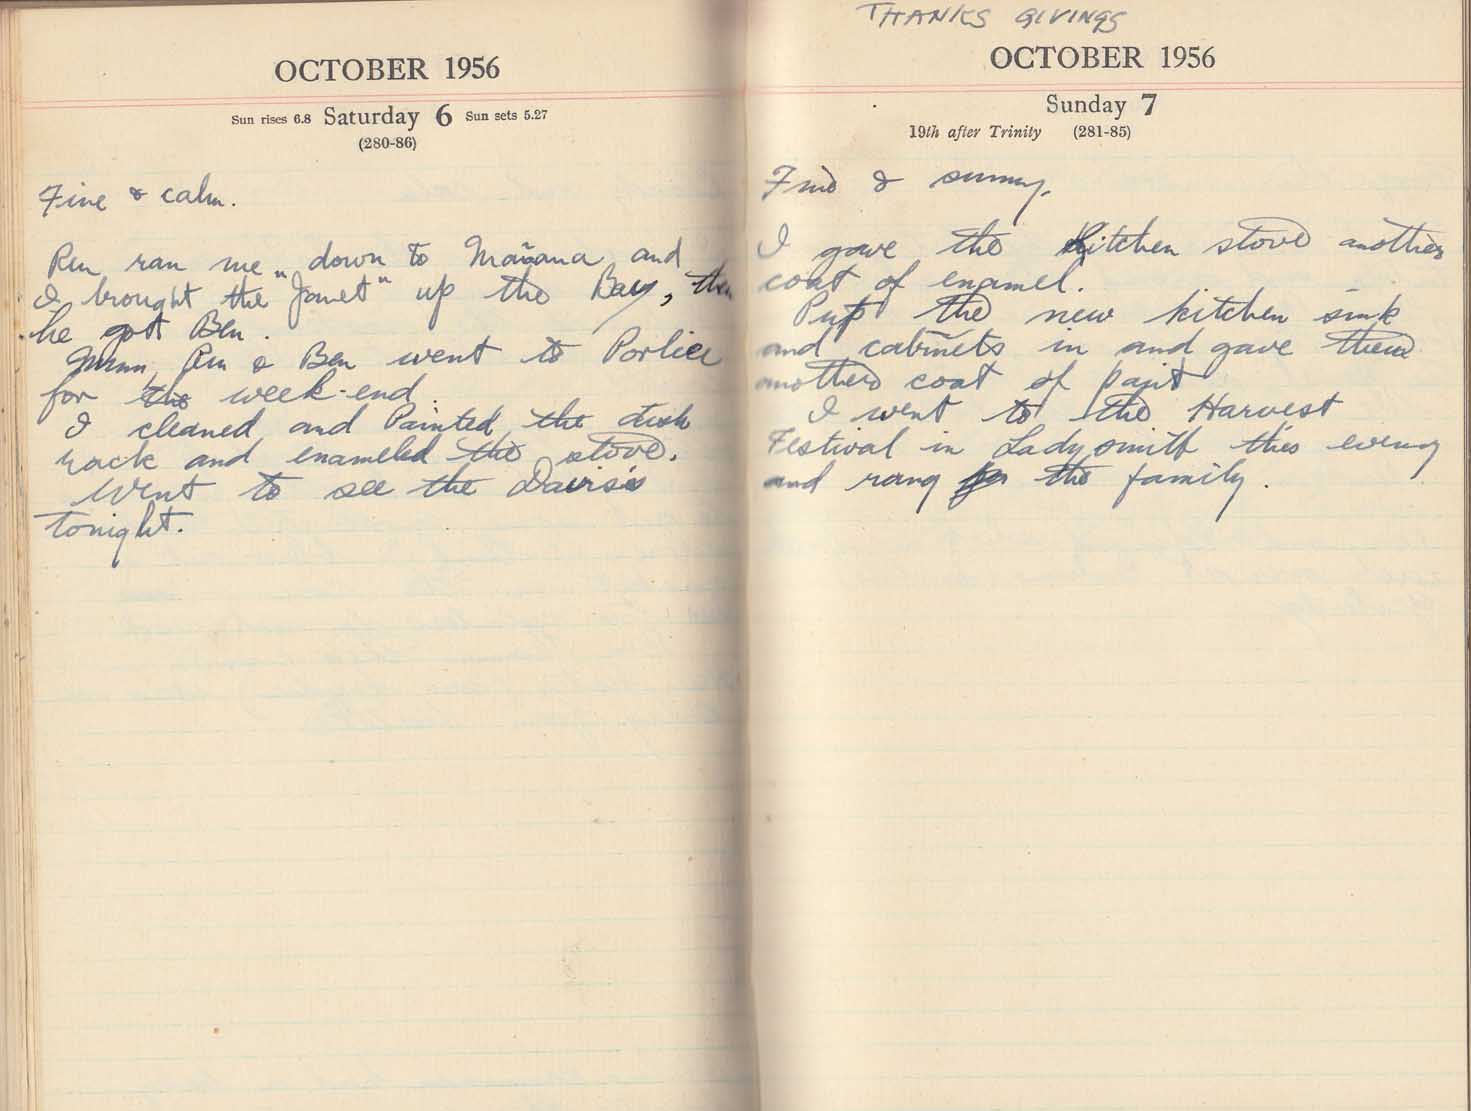 OCTOBER 1956
Sun rises 6.8 Saturday 6 Sun sets 5.27
(280-86)
Fine & calm.
Ren ran me down to Mañana and
I brought the "Janet" up the Bay, then
he got Ben.
Mum, Ren & Ben went to Porlier
for the week-end.
I cleaned and Painted the dish
rack and enameled the stove.
Went to see the Davis's
tonight.
THANKS GIVINGS
OCTOBER 1956
Sunday 7
19th after Trinity (281-85)
Fine & sunny.
I gave the kitchen stove another
coat of enamel.
Put the new kitchen sink
and cabinets in and gave them
another coat of paint
I went to the Harvest
Festival in Ladysmith this evening
and rang the family.